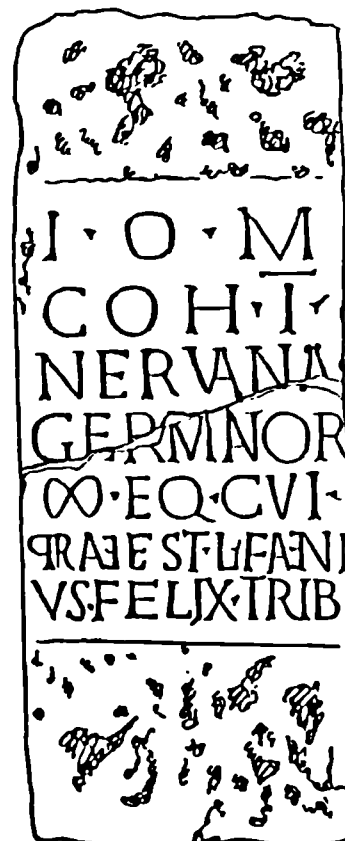 I · O · M
COH · I ·
NERVANA
GERMANOR
∞ · EQ · CVI ·
PRAEEST · L · FAENI
VS · FELIX · TRIB